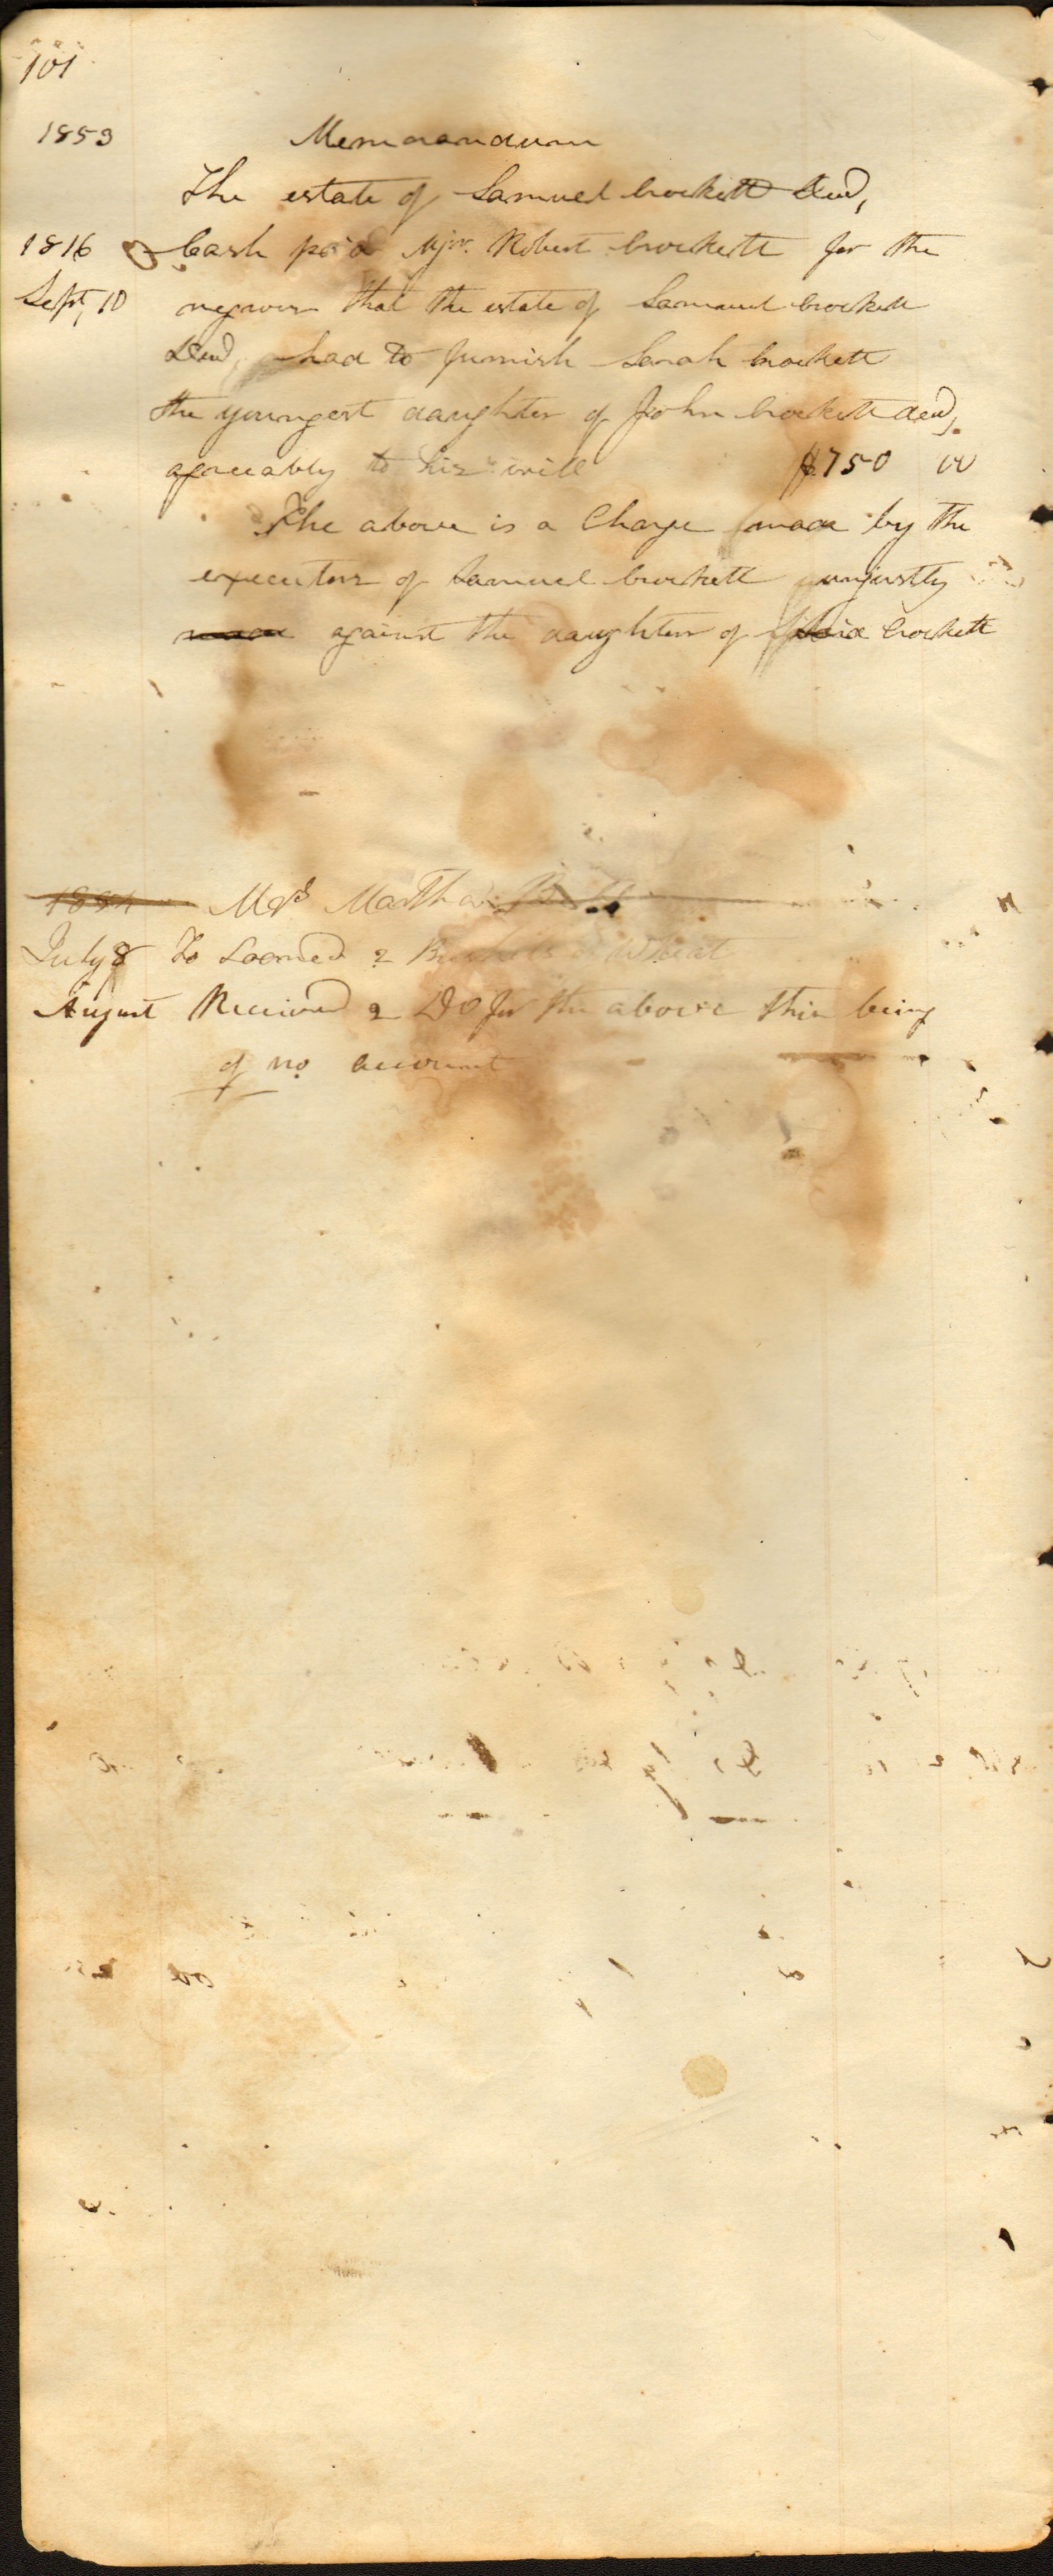 101
1853 Memorandum
The estate of Samuel Crockett decd,
1816 Cash pd Mjr. Robert Crockett for the
Sept, 10 negroes that the estate of Samuel Crockett
decd, had to furnish Sarah Crockett
the youngest daughter of John Crockett decd,
agreeably to his will $750 00
The above is a Charge made by the
executors of Samuel Crockett unjustly
made against the daughters of Crockett
1854 Mrs Martha Bell
July 8 To Loaned 2 Bushels of Wheat
August Received 2 Do for the above this being
of no account